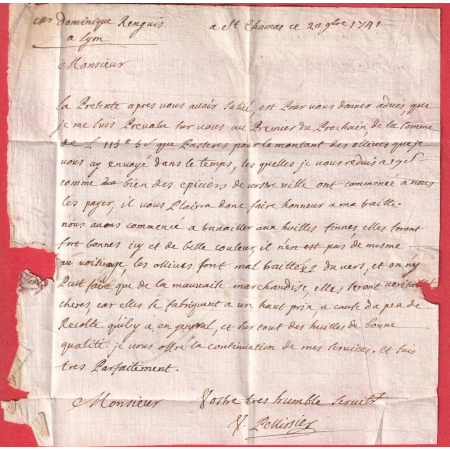 Dominique Renguis a St Chamas ce 20 9bre 1741
a Lyon
Monsieur
la Presente apres vous avoir salué est Pour vous donner advis que
je me suis Prevalu sur vous au Premier du Prochain, de la somme
de L 115 que Passeres pour le montant des ollives que je
vous ay envoyé dans le temps, les quelles je vous reduis a
comme bien des epiciers de vostre ville ont commencé a nous
les payer, il vous Plaira donc faire honneur a ma traitte.
nous avons commencé a travailler aux huilles finnes, elles seront
fort bonnes icy et de belle couleur, il n'en est pas de mesme
au voisinage, les ollives sont mal du vers, et on ny
Puit faire que de la mauvaise marchandise, elles seront
cheres, car elles se fabriquent a un haut prix, a cause du peu de
Recolte quil y a en general, et sur tout des huilles de bonne
qualité. je vous offre la continuation de mes services. et suis
tres Parfaitement.
Monsieur Vostre tres humble servit
Pellissier